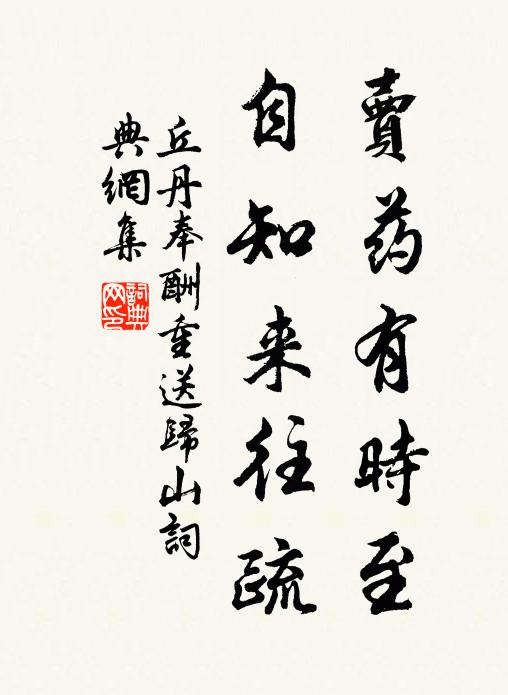 賣药有時至
自知来往疏
丘丹奉酬重送歸山詞
典網集
詞典
网印